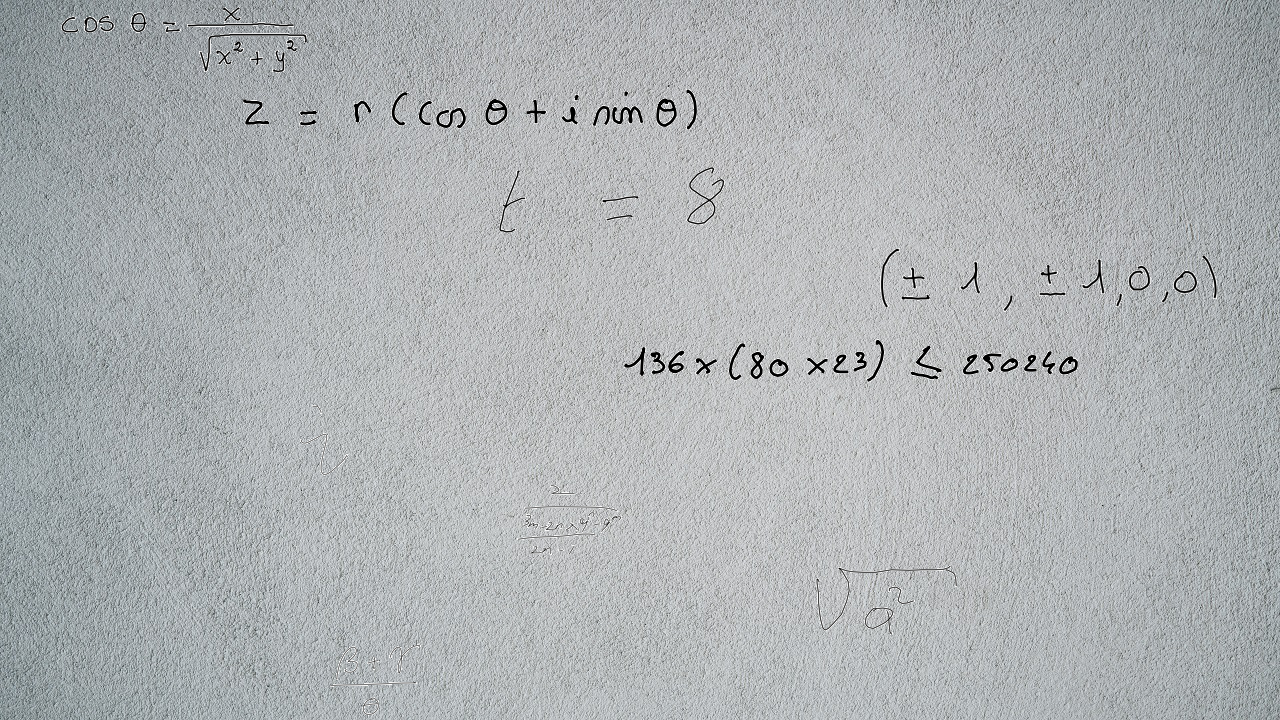 cos θ = x / √(x² + y²)
z = r (cos θ + i sin θ)
t = 8
(± 1, ± 1, 0, 0)
136 × (80 × 23) ≤ 250240
i
√a²